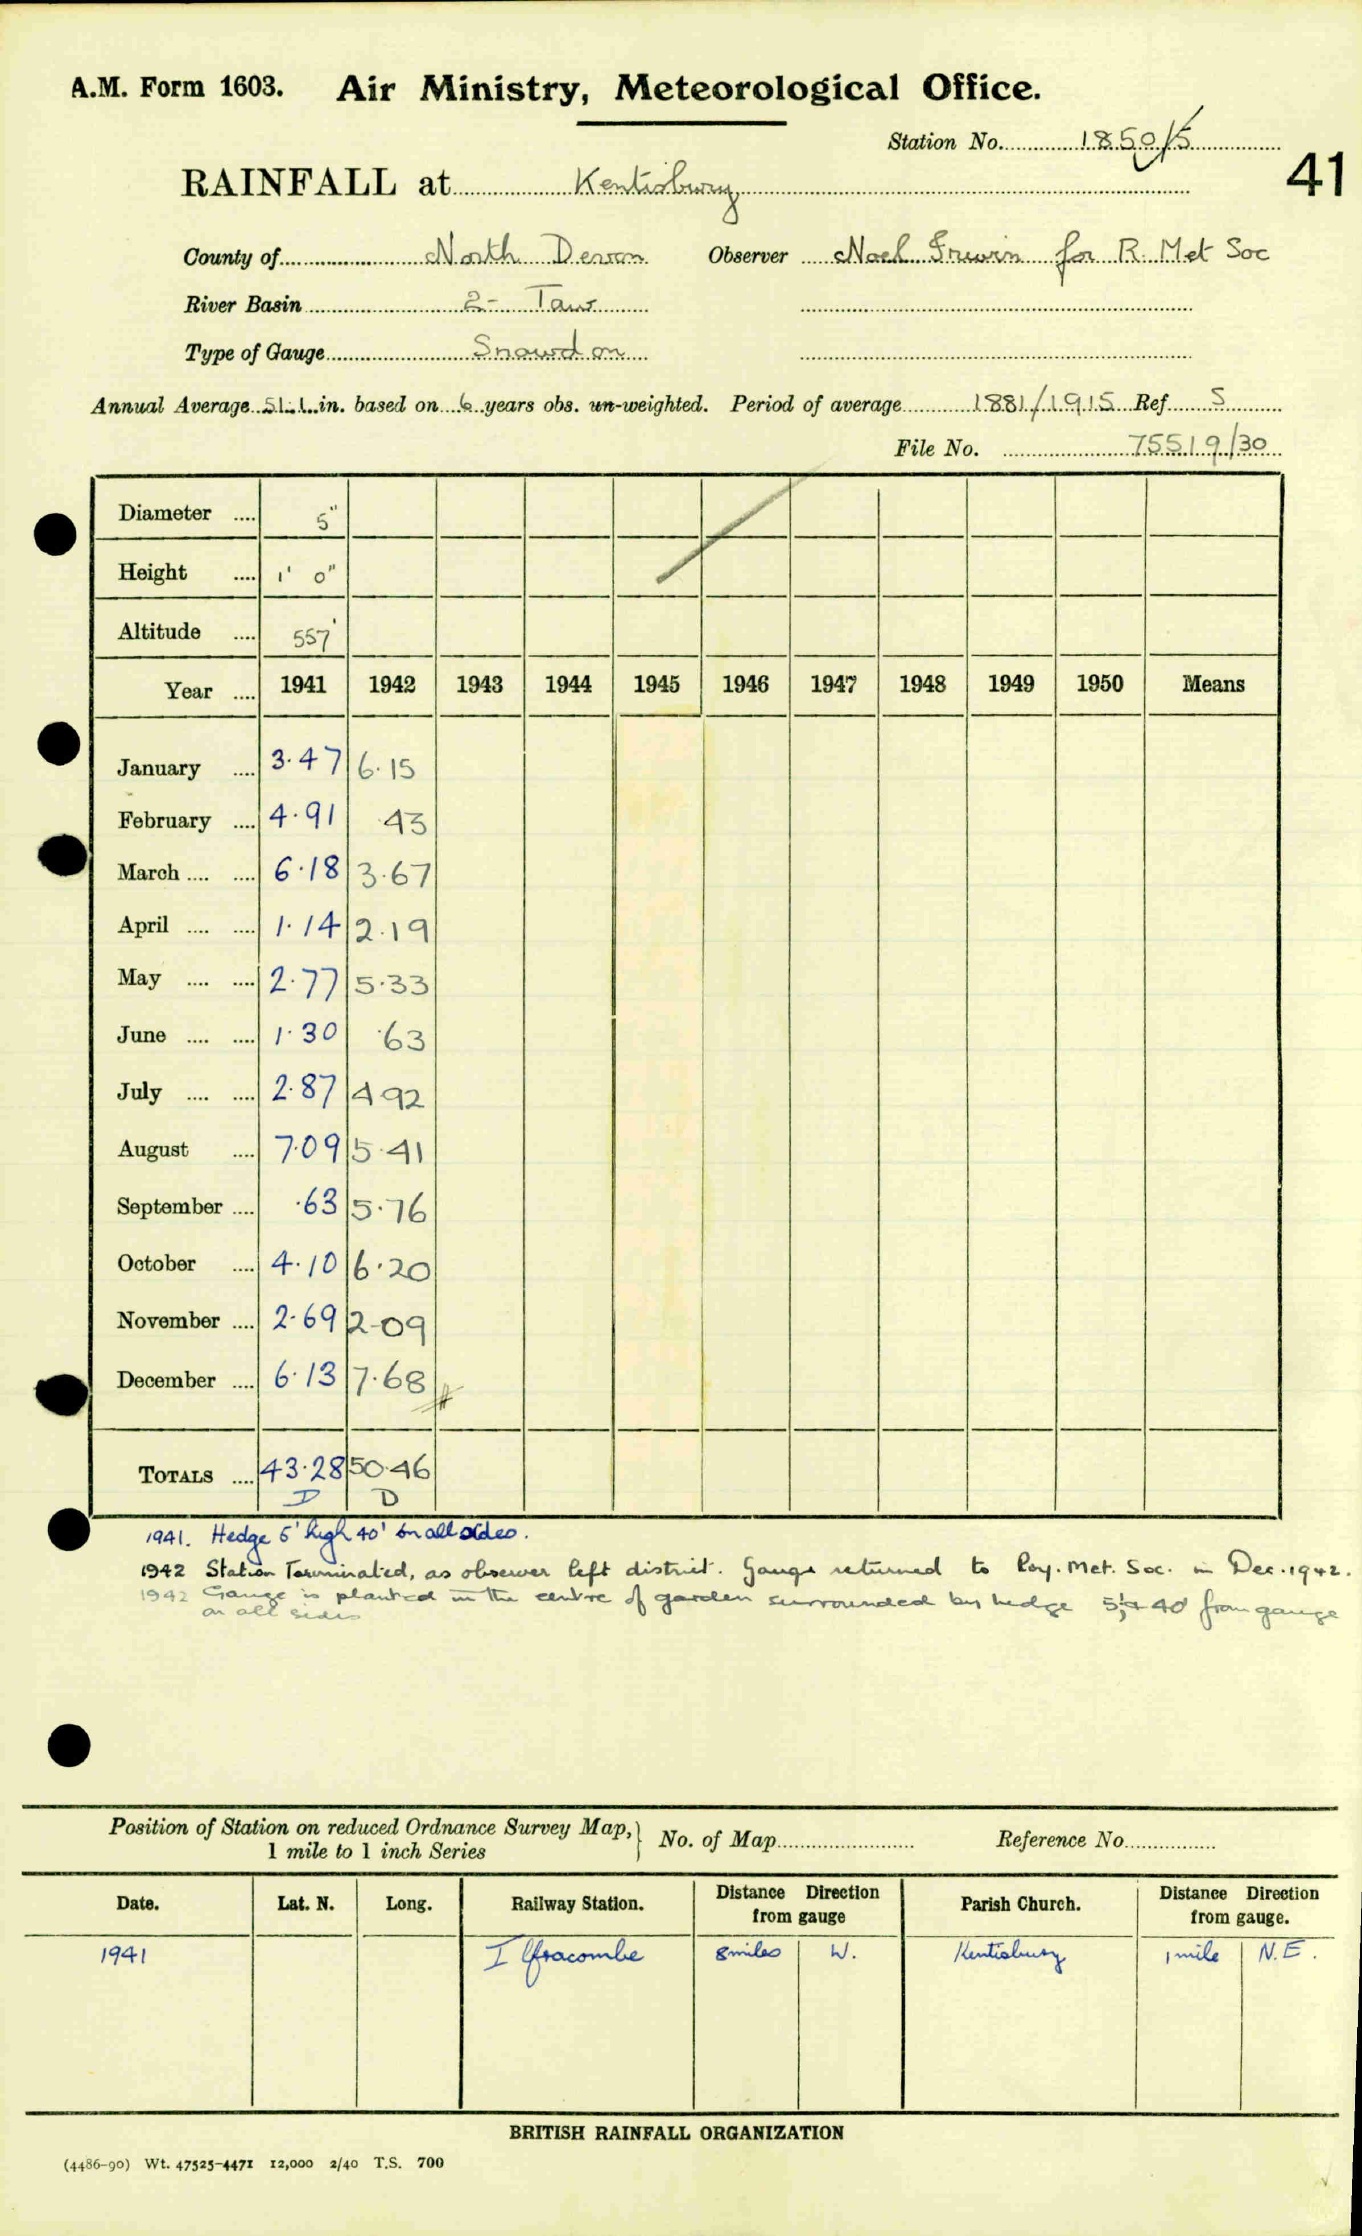 A.M. Form 1603. Air Ministry, Meteorological Office.
Station No. 1850/5
41
RAINFALL at Kentisbury
County of North Devon Observer Noel Irwin for R. Met Soc
River Basin 2- Taw
Type of Gauge Snowdon
Annual Average 51.1 in. based on 6 years obs. un-weighted. Period of average 1881/1915 Ref. S
File No. 75519/30
Diameter .... 5"
Height .... 1' 0"
Altitude .... 557'
Year .... 1941 1942 1943 1944 1945 1946 1947 1948 1949 1950 Means
January .... 3.47 6.15
February .... 4.91 43
March .... .... 6.18 3.67
April .... .... 1.14 2.19
May .... .... 2.77 5.33
June .... .... 1.30 .63
July .... .... 2.87 4.92
August .... 7.09 5.41
September .... .63 5.76
October .... 4.10 6.20
November .... 2.69 2.09
December .... 6.13 7.68
TOTALS .... 43.28 50.46
D D
1941. Hedge 5' high 40' on all sides.
1942 Station Terminated, as observer left district. Gauge returned to Roy. Met. Soc. in Dec. 1942.
1942 Gauge is planted in the centre of garden surrounded by hedge 40' from gauge
on all sides
Position of Station on reduced Ordnance Survey Map, } No. of Map Reference No.
1 mile to 1 inch Series
Date. Lat. N. Long. Railway Station. Distance Direction from gauge Parish Church. Distance Direction from gauge.
1941 Ilfracombe 8 miles W. Kentisbury 1 mile N.E.
BRITISH RAINFALL ORGANIZATION
(4486-90) Wt. 47525-4471 12,000 2/40 T.S. 700